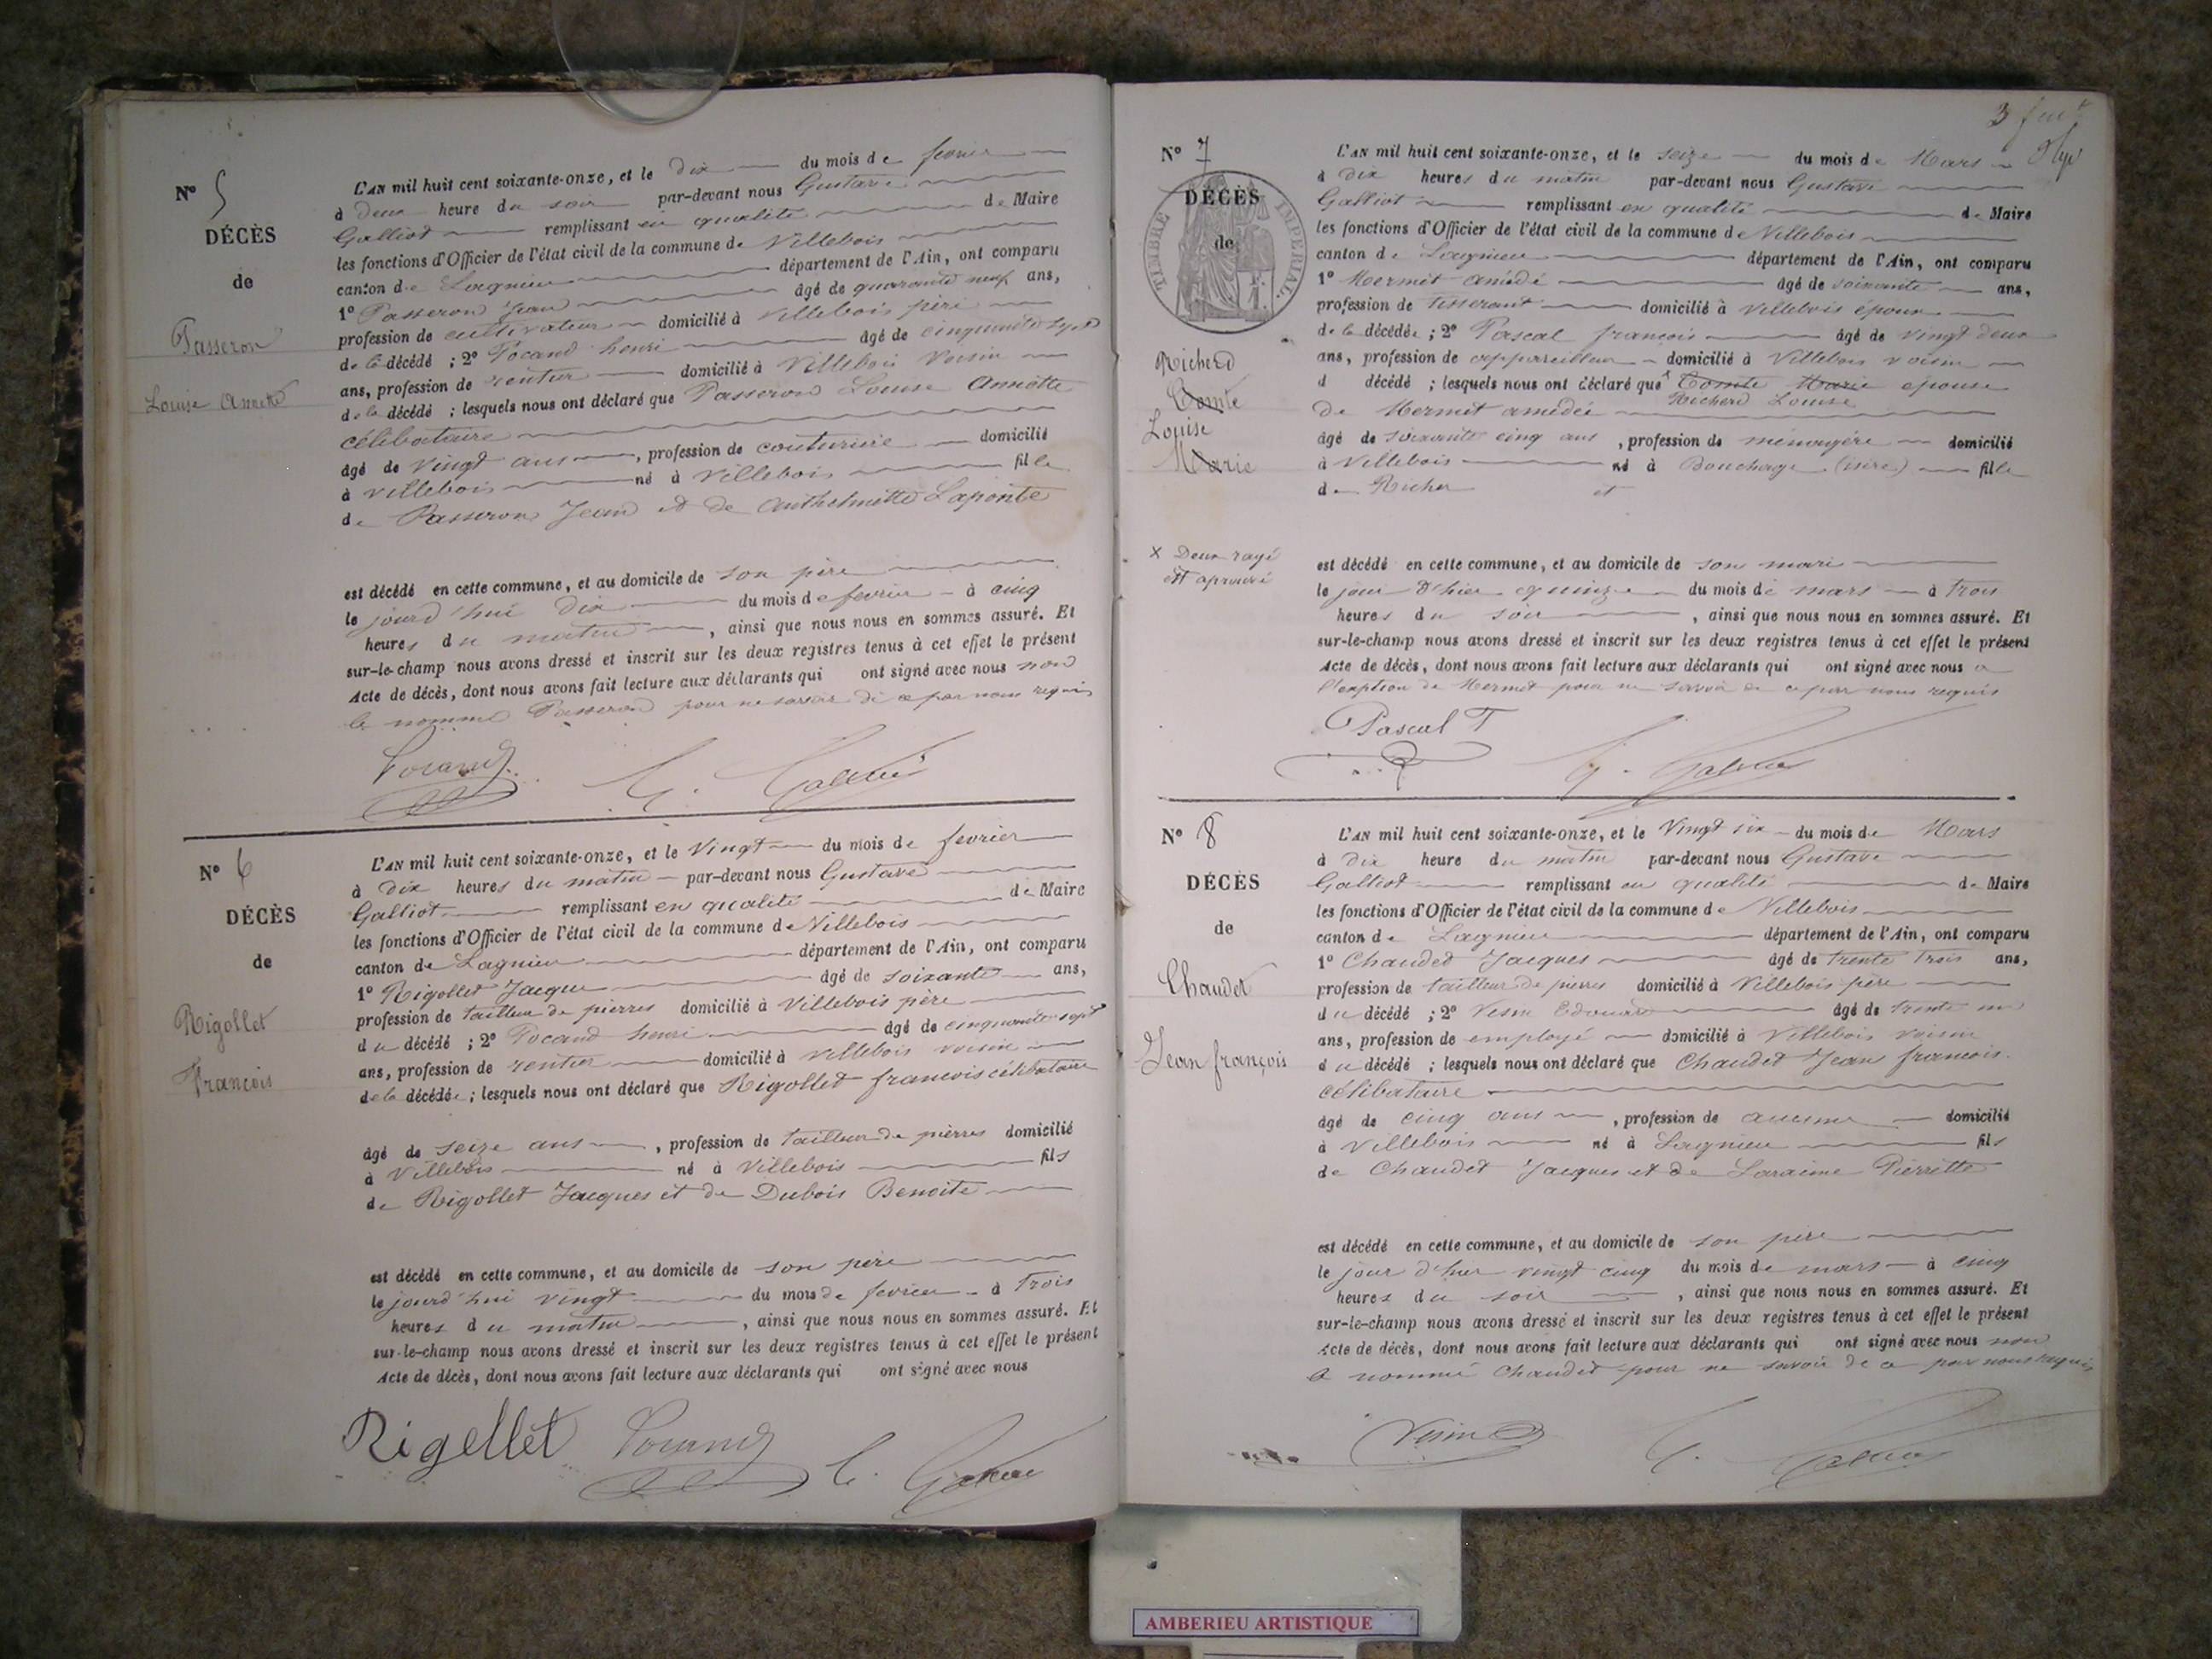 N° 5
DÉCÈS
de
Passeron
Louise Annette
L'AN mil huit cent soixante-onze, et le dix du mois de fevrier
à deux heure du soir par-devant nous Gustave
Galliot remplissant en qualité de Maire
les fonctions d'Officier de l'état civil de la commune de Villebois
canton de Lagnieu département de l'Ain, ont comparu
1° Passeron Jean âgé de quarante neuf ans,
profession de cultivateur domicilié à Villebois père
de la décédé ; 2° Pocand henri âgé de cinquante sept
ans, profession de rentier domicilié à Villebois voisin
de la décédé ; lesquels nous ont déclaré que Passeron Louise Annette
célibataire
âgé de vingt ans, profession de couturière domicilié
à villebois né à villebois fille
de Passeron Jean et de Anthelmette Laponte
est décédé en cette commune, et au domicile de son père
le jourd'hui dix du mois de fevrier à cinq
heures du matin, ainsi que nous nous en sommes assuré. Et
sur-le-champ nous avons dressé et inscrit sur les deux registres tenus à cet effet le présent
Acte de décès, dont nous avons fait lecture aux déclarants qui ont signé avec nous non
le nommé Passeron pour ne savoir de ce par nous requis
N° 6
DÉCÈS
de
Rigollet
François
L'AN mil huit cent soixante-onze, et le Vingt du mois de fevrier
à dix heures du matin par-devant nous Gustave
Galliot remplissant en qualité de Maire
les fonctions d'Officier de l'état civil de la commune de Villebois
canton de Lagnieu département de l'Ain, ont comparu
1° Rigollet Jacque âgé de soixante ans,
profession de tailleur de pierres domicilié à Villebois père
du décédé ; 2° Pocand henri âgé de cinquante sept
ans, profession de rentier domicilié à villebois voisin
de la décédée ; lesquels nous ont déclaré que Rigollet francois célibataire
âgé de seize ans, profession de tailleur de pierres domicilié
à Villebois né à Villebois fils
de Rigollet Jacques et de Dubois Benoite
est décédé en cette commune, et au domicile de son père
le jourd'hui vingt du mois de fevrier à Trois
heures du matin, ainsi que nous nous en sommes assuré. Et
sur-le-champ nous avons dressé et inscrit sur les deux registres tenus à cet effet le présent
Acte de décès, dont nous avons fait lecture aux déclarants qui ont signé avec nous
Rigellet
3
N° 7
TIMBRE IMPERIAL.
DÉCÈS
de
Richerd
Comte
Louise
Marie
L'AN mil huit cent soixante-onze, et le seize du mois de Mars
à dix heures du matin par-devant nous Gustave
Galliot remplissant en qualité de Maire
les fonctions d'Officier de l'état civil de la commune de Villebois
canton de Lagnieu département de l'Ain, ont comparu
1° Mermet amédé âgé de soixante ans,
profession de tisserant domicilié à Villebois époux
de la décédée ; 2° Pascal françois âgé de vingt deux
ans, profession de appareilleur domicilié à Villebois voisin
d décédé ; lesquels nous ont déclaré que x Comte Marie epouse
Richerd Louise
de Mermet amédée
âgé de soixante cinq ans, profession de ménagère domicilié
à Villebois né à Bouchage (isère) fille
de Richer et
x Deux rayé
est aprouvé
est décédé en cette commune, et au domicile de son mari
le jour d'hier quinze du mois de mars à trois
heures du soir, ainsi que nous nous en sommes assuré. Et
sur-le-champ nous avons dressé et inscrit sur les deux registres tenus à cet effet le présent
Acte de décès, dont nous avons fait lecture aux déclarants qui ont signé avec nous a
l'exption de Mermet pour ne savoir de ce par nous requis
Pascal F
N° 8
DÉCÈS
de
Chaudet
Jean françois
L'AN mil huit cent soixante-onze, et le Vingt six du mois de Mars
à dix heure du matin par-devant nous Gustave
Galliot remplissant en qualité de Maire
les fonctions d'Officier de l'état civil de la commune de Villebois
canton de Lagnieu département de l'Ain, ont comparu
1° Chaudet Jacques âgé de trente trois ans,
profession de tailleur de pierres domicilié à Villebois père
du décédé ; 2° Vesin Edouard âgé de trente un
ans, profession de employé domicilié à Villebois voisin
du décédé ; lesquels nous ont déclaré que Chaudet Jean francois
célibataire
âgé de cinq ans, profession de aucune domicilié
à Villebois né à Lagnieu fils
de Chaudet Jacques et de Laraime Pierrette
est décédé en cette commune, et au domicile de son père
le jour d'hier vingt cinq du mois de mars à cinq
heures du soir, ainsi que nous nous en sommes assuré. Et
sur-le-champ nous avons dressé et inscrit sur les deux registres tenus à cet effet le présent
Acte de décès, dont nous avons fait lecture aux déclarants qui ont signé avec nous non
le nommé Chaudet pour ne savoir de ce par nous requis
Vesin
AMBERIEU ARTISTIQUE